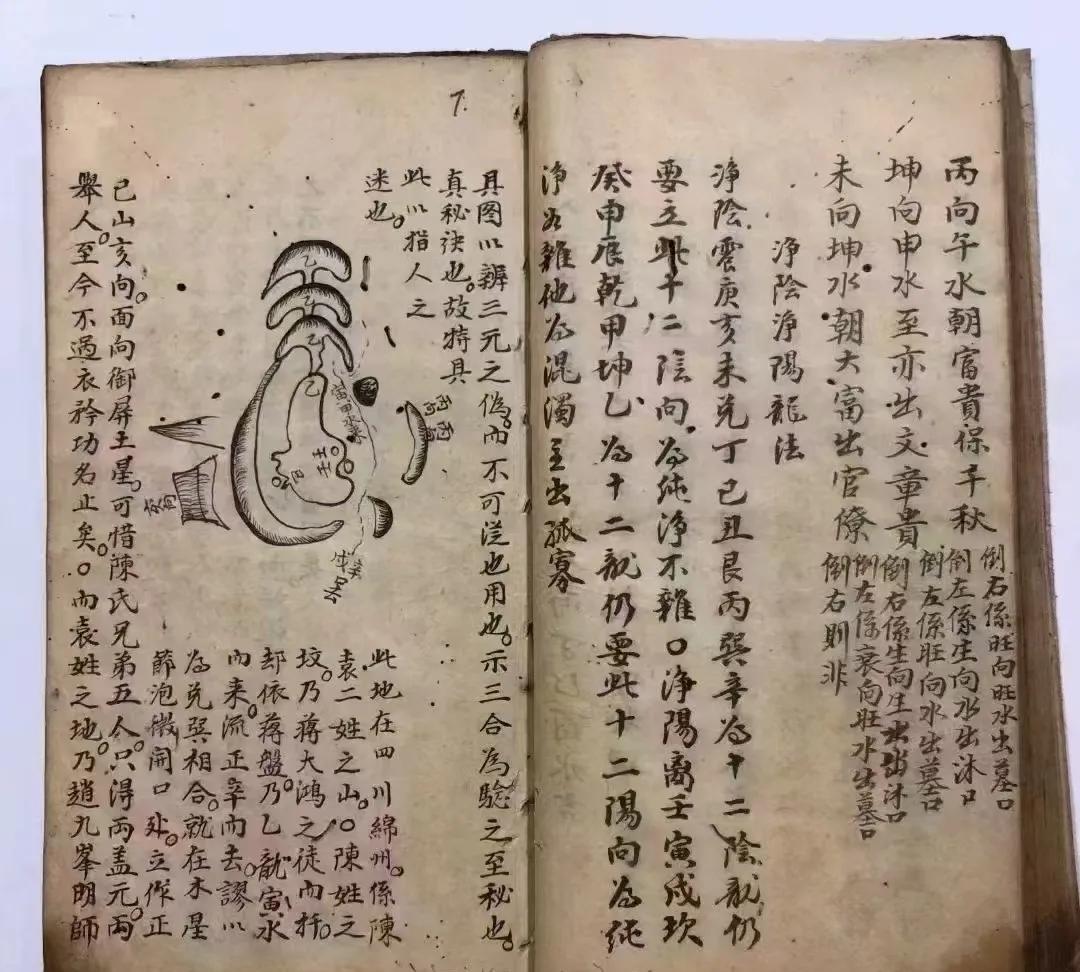 丙向午水朝富貴保千秋
倒右係旺向旺水出墓口
倒左係生向水出沐口
坤向申水至亦出文章貴
倒左係旺向水出墓口
倒右係生向生水出沐口
未向坤水朝大富出官僚
倒左係衰向旺水出墓口
倒右則非
淨陰淨陽龍法
淨陰震庚亥未兌丁巳丑艮丙巽辛為十二陰龍仍
要立此十二陰向為純淨不雜〇淨陽离壬寅戌坎
癸申辰乾甲坤乙為十二龍仍要此十二陽向為純
淨若雜他為混濁主出孤寡
7.
具图以辨三元之偽。而不可從也用也。示三合為驗之至秘也。
真秘诀也。故特具
此以指人之
迷也。
乙
乙
乙
乙
寅甲水來
丙丙
此地在四川綿州。係陳
袁二姓之山。〇陳姓之
坟。乃蔣大鴻之徒而扦。
却依蔣盤。乃乙龍寅水
而来。流正辛而去。謬以
為兌巽相合。就在木星
節泡微開口处。立作正
巳山亥向。面向御屏土星。可惜陳氏兄弟五人。只得兩盖元。兩
舉人。至今不過衣衿功名止矣。〇而袁姓之地。乃趙九峯明師